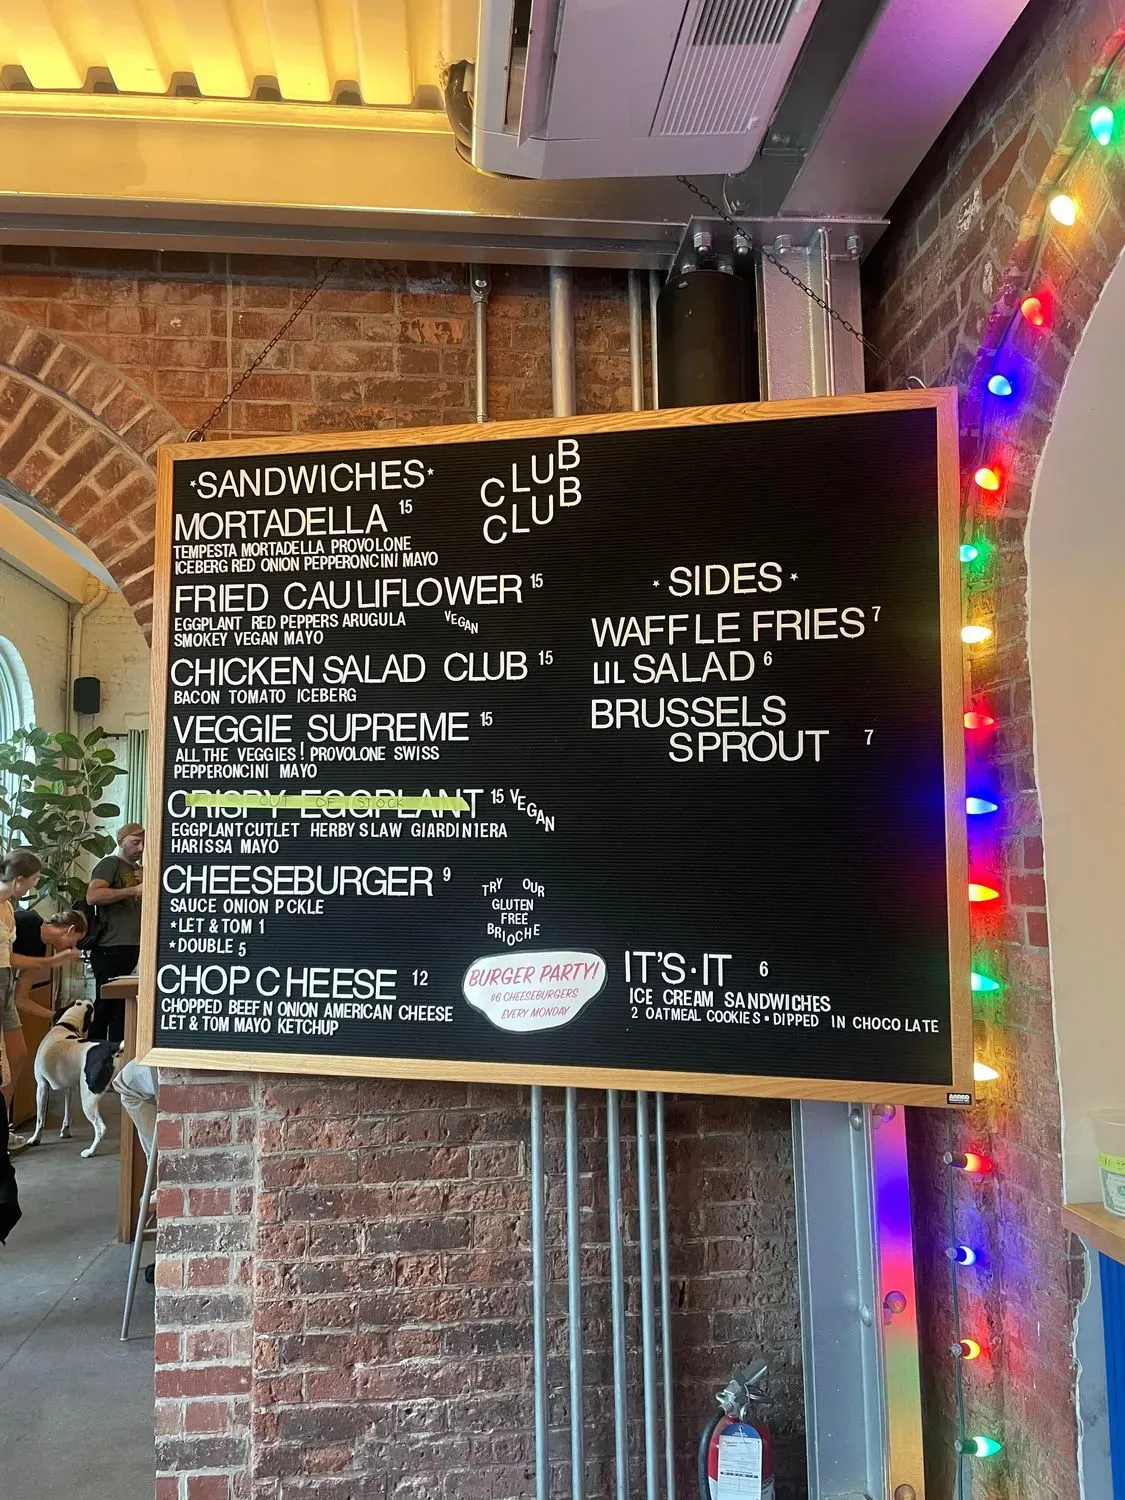 *SANDWICHES*
CLUB
CLUB
MORTADELLA 15
TEMPESTA MORTADELLA PROVOLONE
ICEBERG RED ONION PEPPERONCINI MAYO
FRIED CAULIFLOWER 15
EGGPLANT RED PEPPERS ARUGULA VEGAN
SMOKEY VEGAN MAYO
CHICKEN SALAD CLUB 15
BACON TOMATO ICEBERG
VEGGIE SUPREME 15
ALL THE VEGGIES! PROVOLONE SWISS
PEPPERONCINI MAYO
CRISPY EGGPLANT 15 VEGAN
OUT OF STOCK
EGGPLANT CUTLET HERBY SLAW GIARDINIERA
HARISSA MAYO
CHEESEBURGER 9
SAUCE ONION P CKLE
*LET & TOM 1
*DOUBLE 5
TRY OUR
GLUTEN
FREE
BRIOCHE
CHOP CHEESE 12
CHOPPED BEEF N ONION AMERICAN CHEESE
LET & TOM MAYO KETCHUP
BURGER PARTY!
$6 CHEESEBURGERS
EVERY MONDAY
*SIDES*
WAFFLE FRIES 7
LIL SALAD 6
BRUSSELS
SPROUT 7
IT'S•IT 6
ICE CREAM SANDWICHES
2 OATMEAL COOKIES • DIPPED IN CHOCOLATE